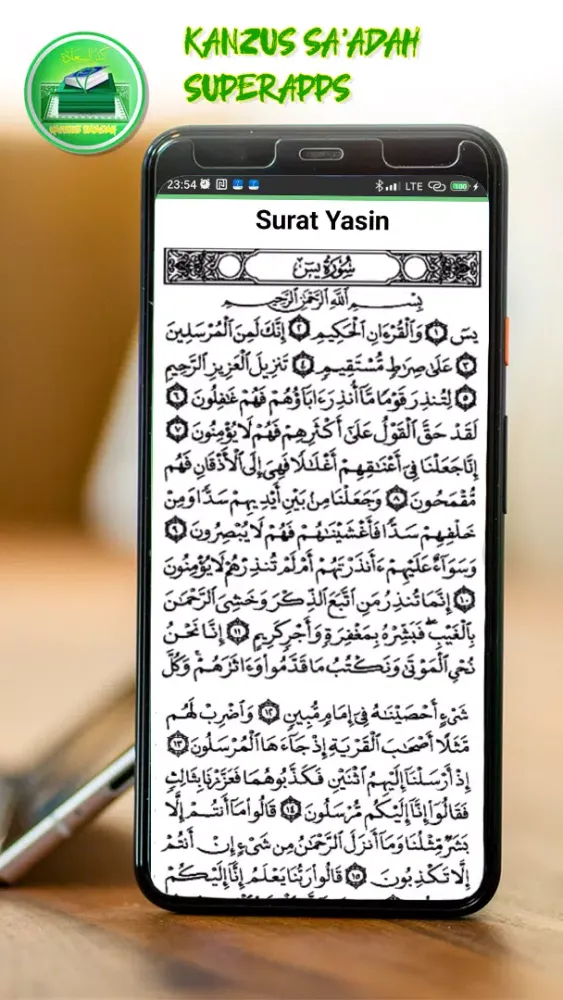 KANZUS SA'ADAH
SUPERAPPS
KANZUS SA'ADAH
23:54
LTE
100
Surat Yasin
سُورَةُ يسٓ
بِسْمِ ٱللَّهِ ٱلرَّحْمَٰنِ ٱلرَّحِيمِ
يسٓ ١ وَٱلْقُرْءَانِ ٱلْحَكِيمِ ٢ إِنَّكَ لَمِنَ ٱلْمُرْسَلِينَ
٣ عَلَىٰ صِرَٰطٍ مُّسْتَقِيمٍ ٤ تَنزِيلَ ٱلْعَزِيزِ ٱلرَّحِيمِ
٥ لِتُنذِرَ قَوْمًا مَّآ أُنذِرَ ءَابَآؤُهُمْ فَهُمْ غَٰفِلُونَ ٦
لَقَدْ حَقَّ ٱلْقَوْلُ عَلَىٰٓ أَكْثَرِهِمْ فَهُمْ لَا يُؤْمِنُونَ ٧
إِنَّا جَعَلْنَا فِىٓ أَعْنَٰقِهِمْ أَغْلَٰلًا فَهِىَ إِلَى ٱلْأَذْقَانِ فَهُم
مُّقْمَحُونَ ٨ وَجَعَلْنَا مِنۢ بَيْنِ أَيْدِيهِمْ سَدًّا وَمِنْ
خَلْفِهِمْ سَدًّا فَأَغْشَيْنَٰهُمْ فَهُمْ لَا يُبْصِرُونَ ٩
وَسَوَآءٌ عَلَيْهِمْ ءَأَنذَرْتَهُمْ أَمْ لَمْ تُنذِرْهُمْ لَا يُؤْمِنُونَ
١٠ إِنَّمَا تُنذِرُ مَنِ ٱتَّبَعَ ٱلذِّكْرَ وَخَشِىَ ٱلرَّحْمَٰنَ
بِٱلْغَيْبِ ۖ فَبَشِّرْهُ بِمَغْفِرَةٍ وَأَجْرٍ كَرِيمٍ ١١ إِنَّا نَحْنُ
نُحْىِ ٱلْمَوْتَىٰ وَنَكْتُبُ مَا قَدَّمُوا۟ وَءَاثَٰرَهُمْ ۚ وَكُلَّ
شَىْءٍ أَحْصَيْنَٰهُ فِىٓ إِمَامٍ مُّبِينٍ ١٢ وَٱضْرِبْ لَهُم
مَّثَلًا أَصْحَٰبَ ٱلْقَرْيَةِ إِذْ جَآءَهَا ٱلْمُرْسَلُونَ ١٣
إِذْ أَرْسَلْنَآ إِلَيْهِمُ ٱثْنَيْنِ فَكَذَّبُوهُمَا فَعَزَّزْنَا بِثَالِثٍ
فَقَالُوٓا۟ إِنَّآ إِلَيْكُم مُّرْسَلُونَ ١٤ قَالُوا۟ مَآ أَنتُمْ إِلَّا
بَشَرٌ مِّثْلُنَا وَمَآ أَنزَلَ ٱلرَّحْمَٰنُ مِن شَىْءٍ إِنْ أَنتُمْ
إِلَّا تَكْذِبُونَ ١٥ قَالُوا۟ رَبُّنَا يَعْلَمُ إِنَّآ إِلَيْكُمْ